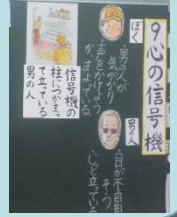 9 心の信号機
ぼく
・男の人が
気がかり
声をかけようか
まよっている
男の人
・目が不自由
そう
じっと立っている
信号機の
柱につかまっ
て立っている
男の人